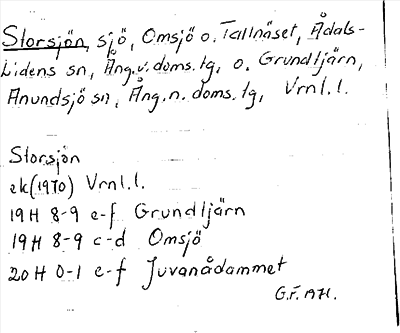 Storsjön, sjö, Omsjö o. Tallnäset, Ådals-
Lidens sn, Ång.v.doms.lg, o. Grundtjärn,
Anundsjö sn, Ång.n.doms.lg, Vrnl.l.
Storsjön
ek(1970) Vrnl.l.
19H 8-9 e-f Grundtjärn
19H 8-9 c-d Omsjö
20H 0-1 e-f Juvanådammet
G.F. 1971.